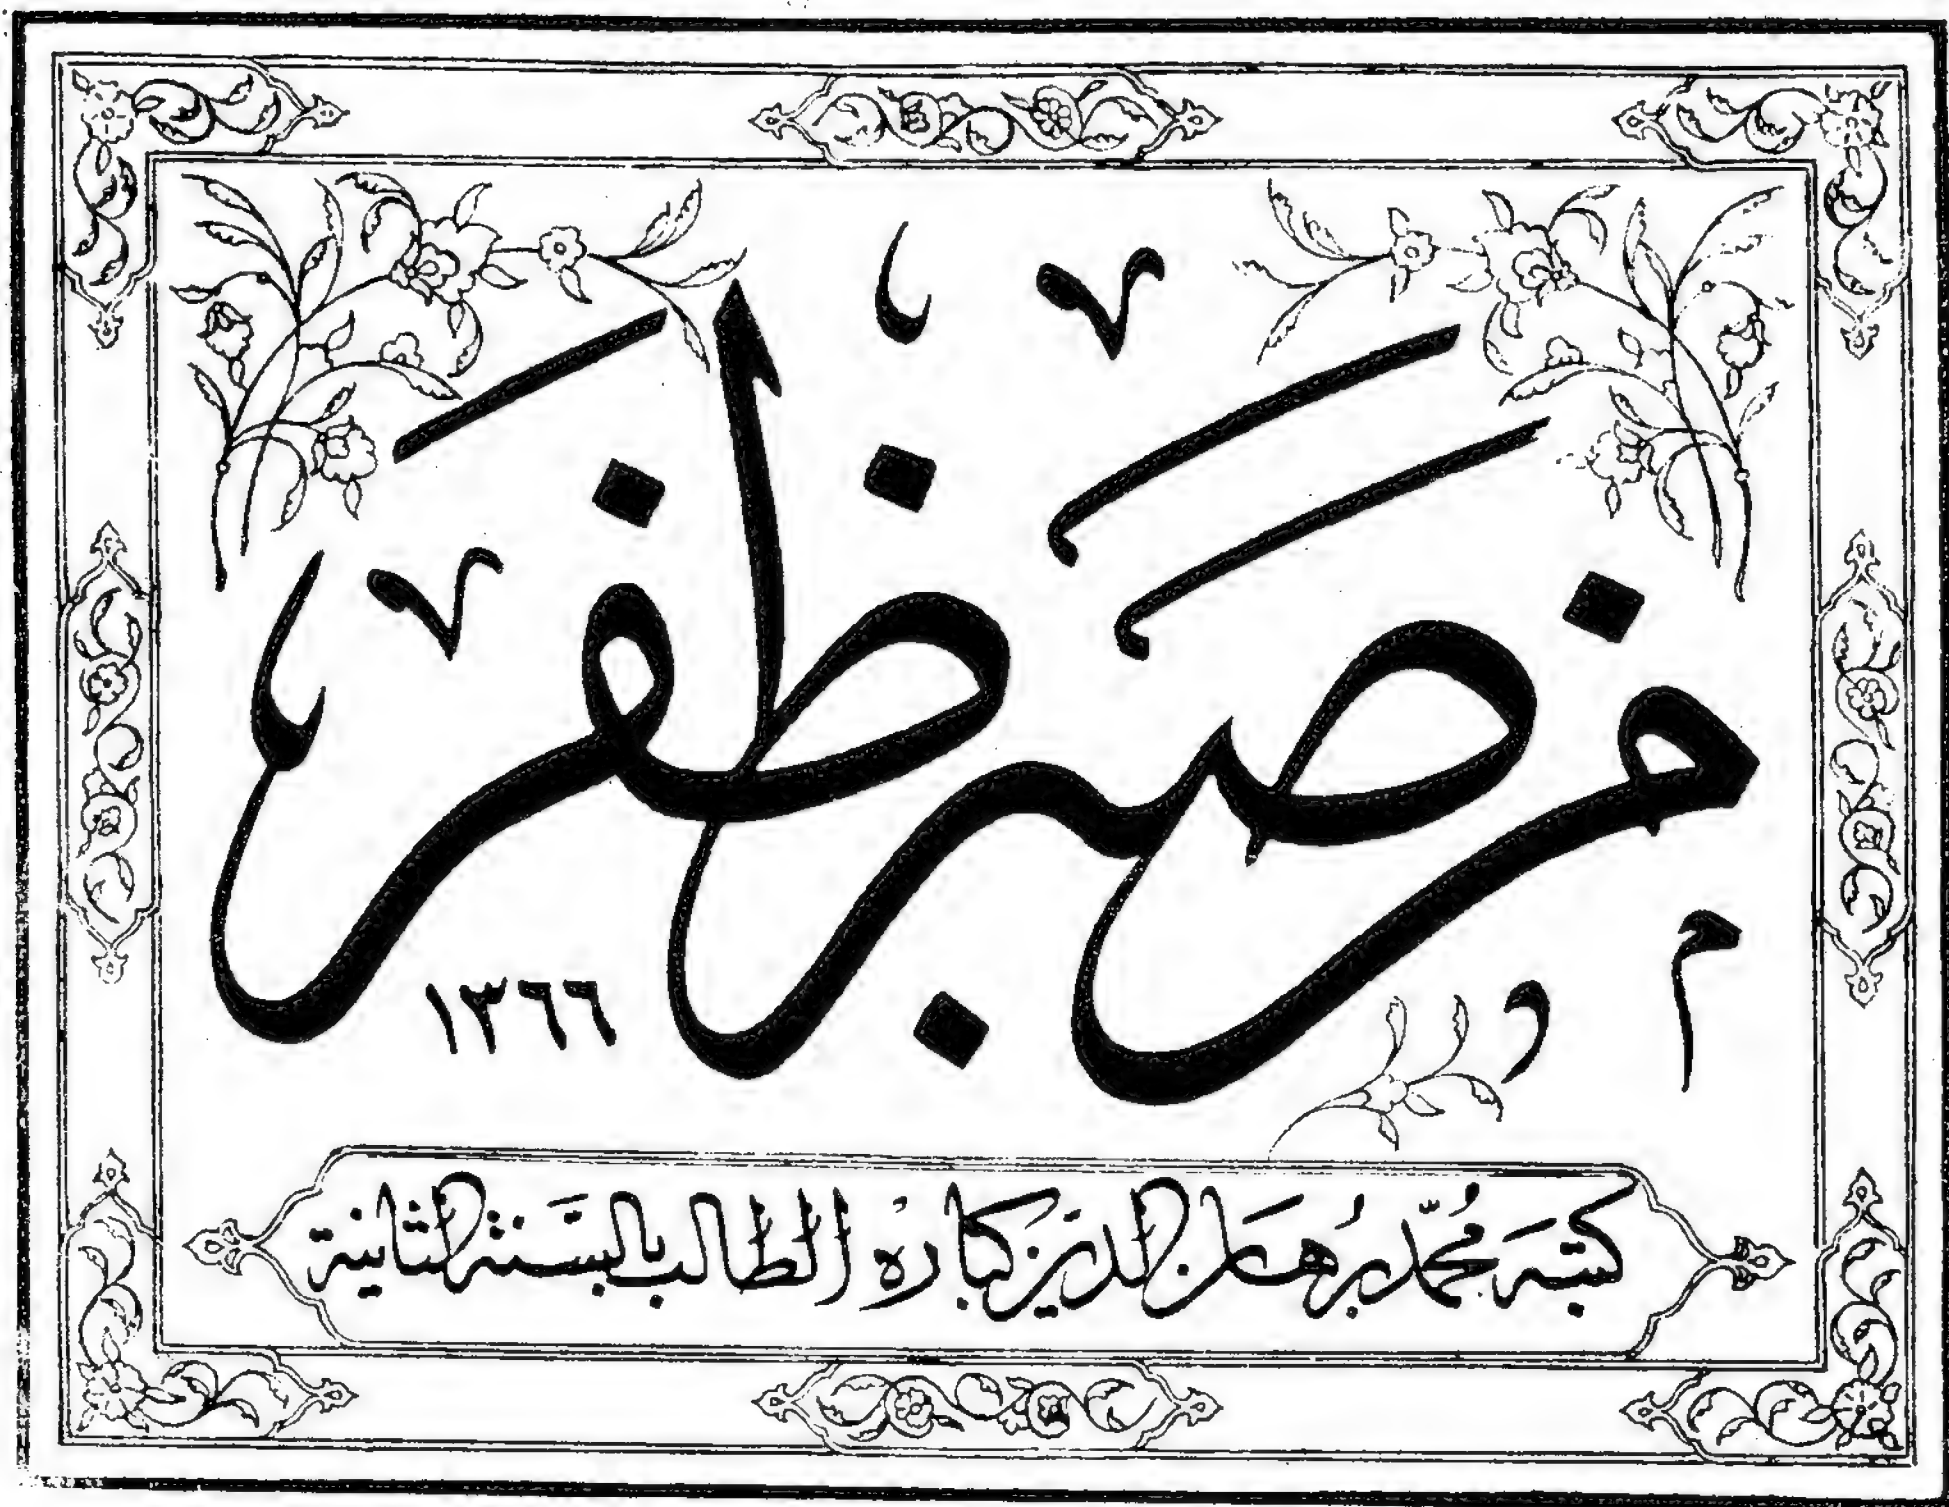 من صبر ظفر
١٣٦٦
كتبه محمّد برهان الدين كباره الطالب بالسنة الثانية